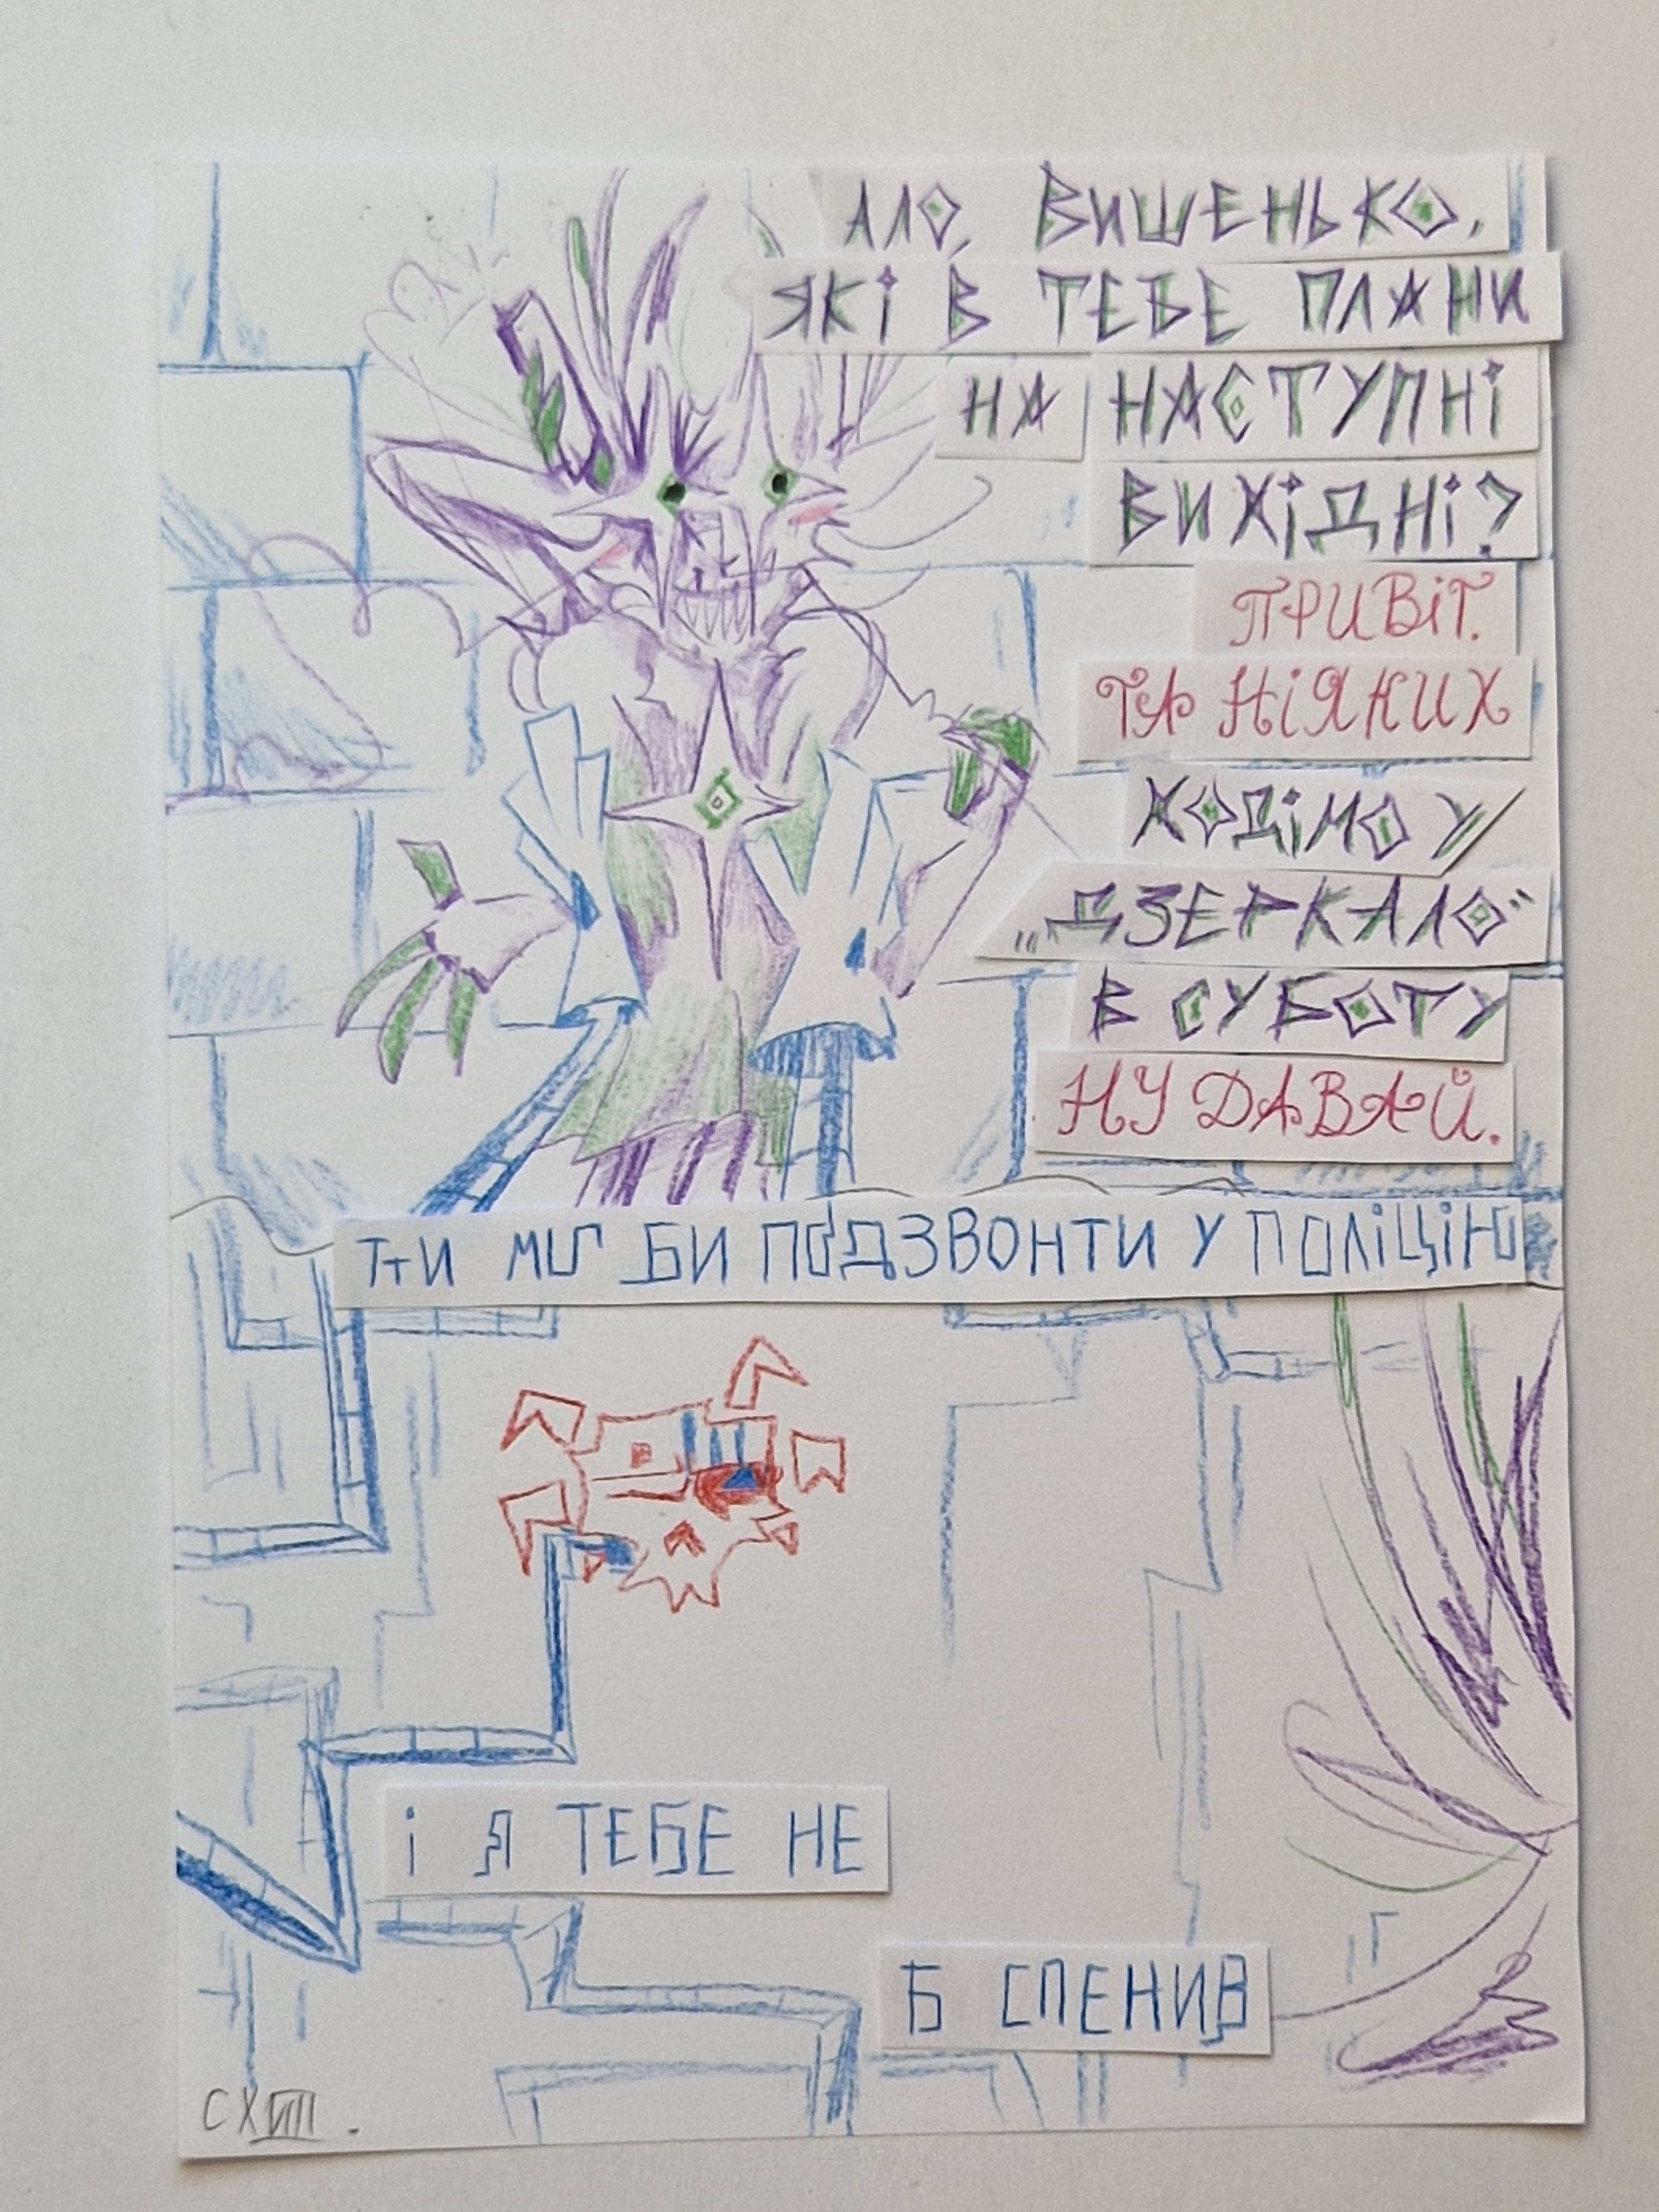 АЛО, ВИШЕНЬКО,
ЯКІ В ТЕБЕ ПЛАНИ
НА НАСТУПНІ
ВИХІДНІ?
ПРИВІТ.
ТА НІЯКИХ
ХОДІМО У
„ДЗЕРКАЛО"
В СУБОТУ
НУ ДАВАЙ.
ТИ МІГ БИ ПОДЗВОНТИ У ПОЛІЦІЮ
І Я ТЕБЕ НЕ
Б СПЕНИВ
CXVIII.